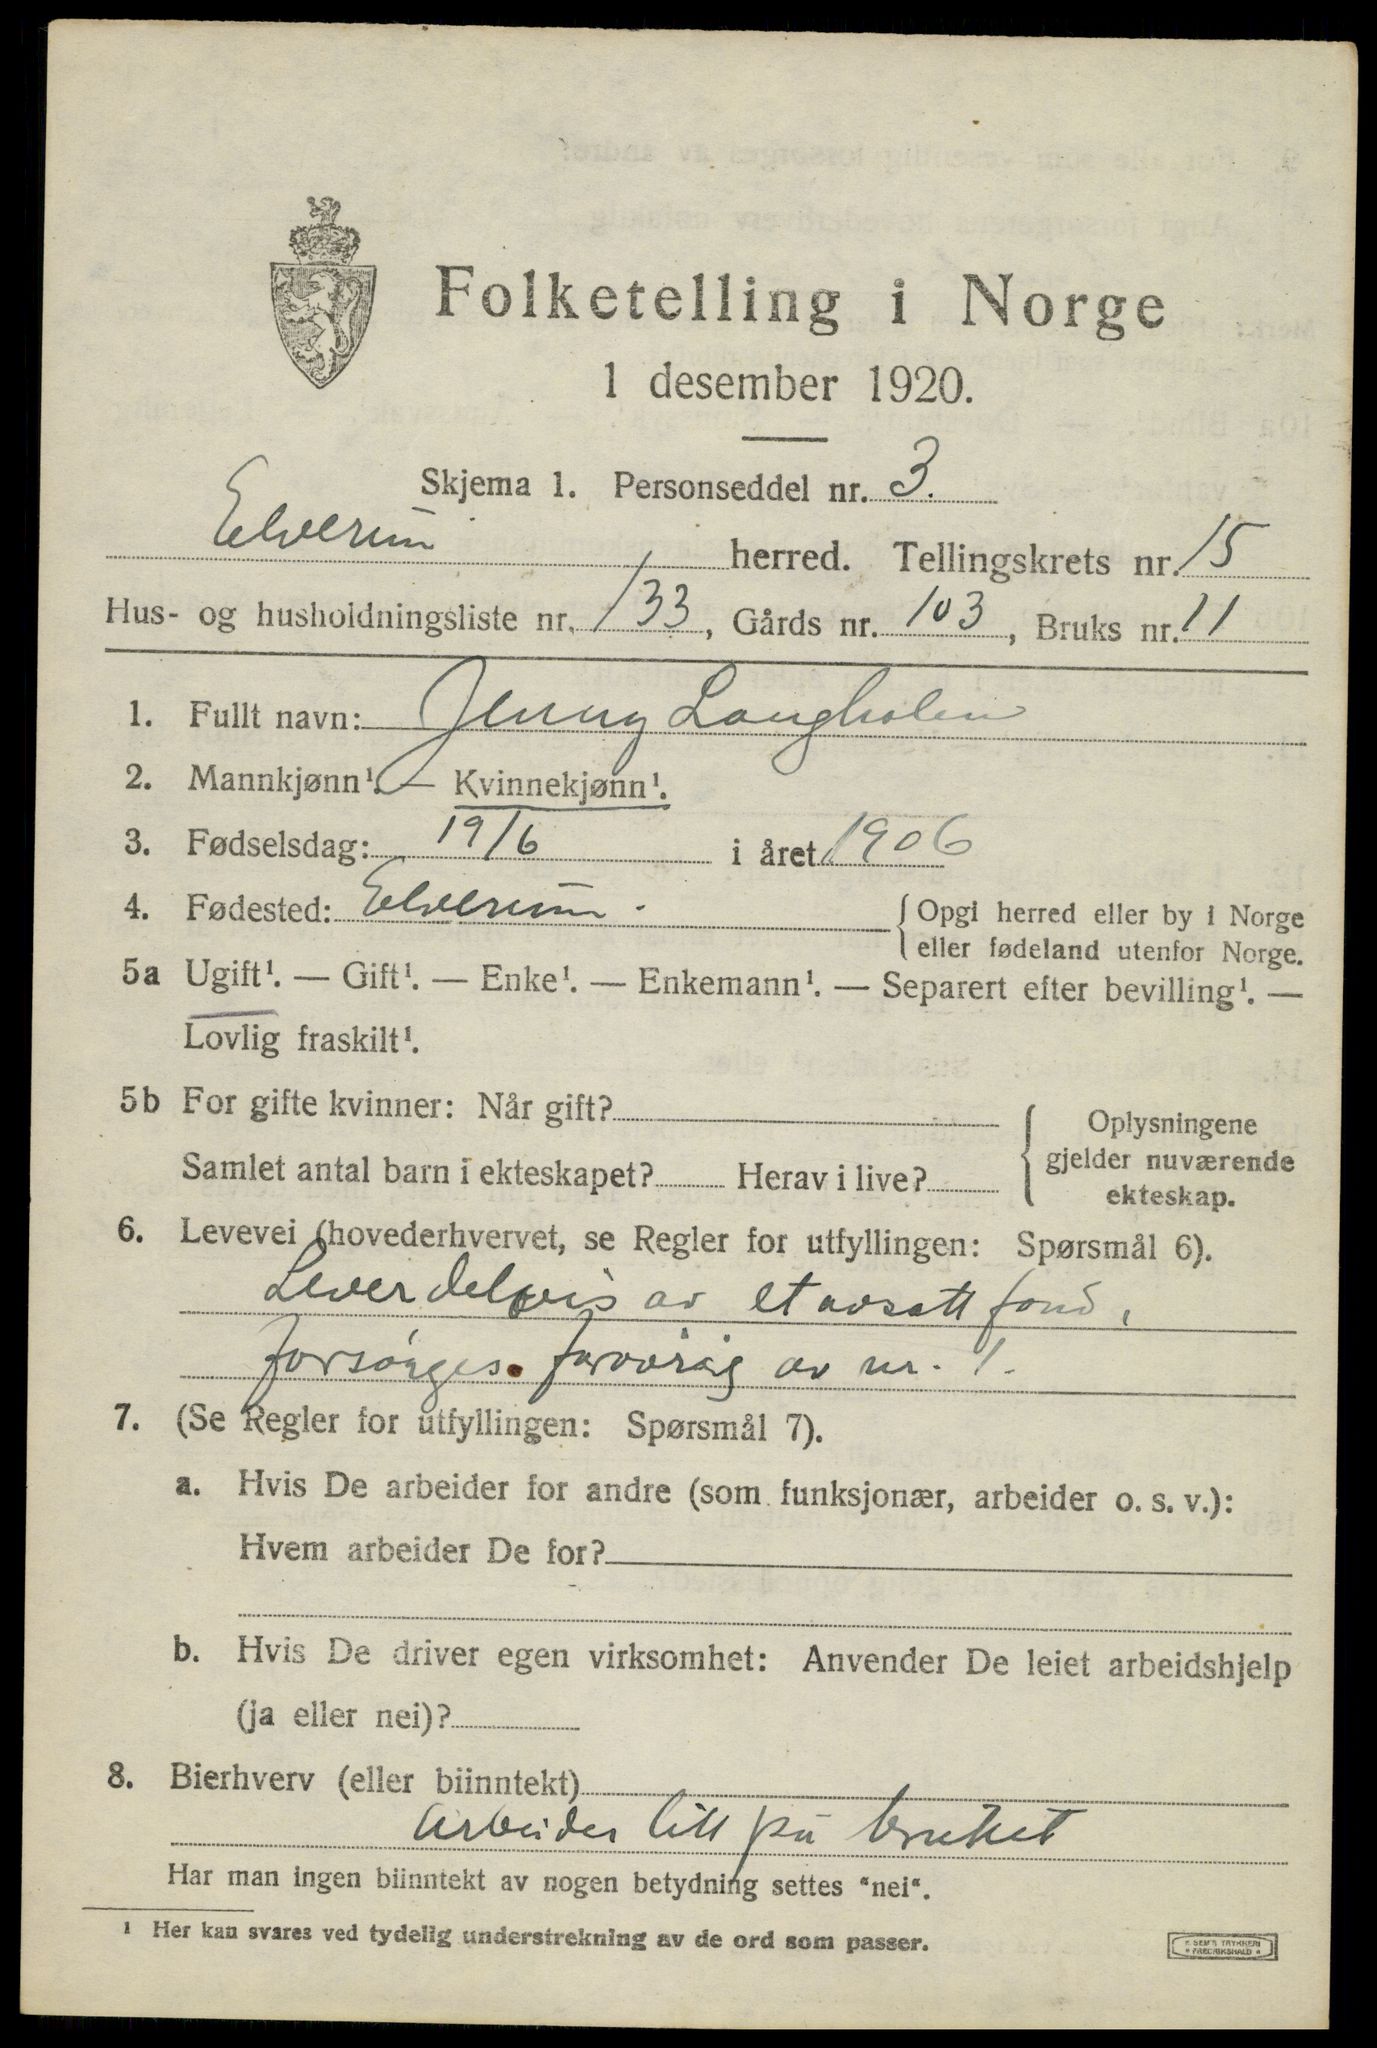 Folketelling i Norge
1 desember 1920.
Skjema 1. Personseddel nr. 3.
Elverum herred. Tellingskrets nr. 15
Hus- og husholdningsliste nr. 133, Gårds nr. 103, Bruks nr. 11
1. Fullt navn: Jenny Langholen
2. Mannkjønn¹. — Kvinnekjønn¹.
3. Fødselsdag: 19/6 i året 1906
4. Fødested: Elverum. {Opgi herred eller by i Norge
eller fødeland utenfor Norge.
5a Ugift¹. — Gift¹. — Enke¹. — Enkemann¹. — Separert efter bevilling¹. —
Lovlig fraskilt¹.
5b For gifte kvinner: Når gift? { Oplysningene
gjelder nuværende
Samlet antal barn i ekteskapet? Herav i live?
ekteskap.
6. Levevei (hovederhvervet, se Regler for utfyllingen: Spørsmål 6).
Lever delvis av et avsatt fond,
forsørges. forøvrig av nr. 1.
7. (Se Regler for utfyllingen: Spørsmål 7).
a. Hvis De arbeider for andre (som funksjonær, arbeider o. s. v.):
Hvem arbeider De for?
b. Hvis De driver egen virksomhet: Anvender De leiet arbeidshjelp
(ja eller nei)?
8. Bierhverv (eller biinntekt)
Arbeider litt på bruket
Har man ingen biinntekt av nogen betydning settes "nei".
¹ Her kan svares ved tydelig understrekning av de ord som passer.
SEM'S TRYKKERI
FREDRIKSHALD